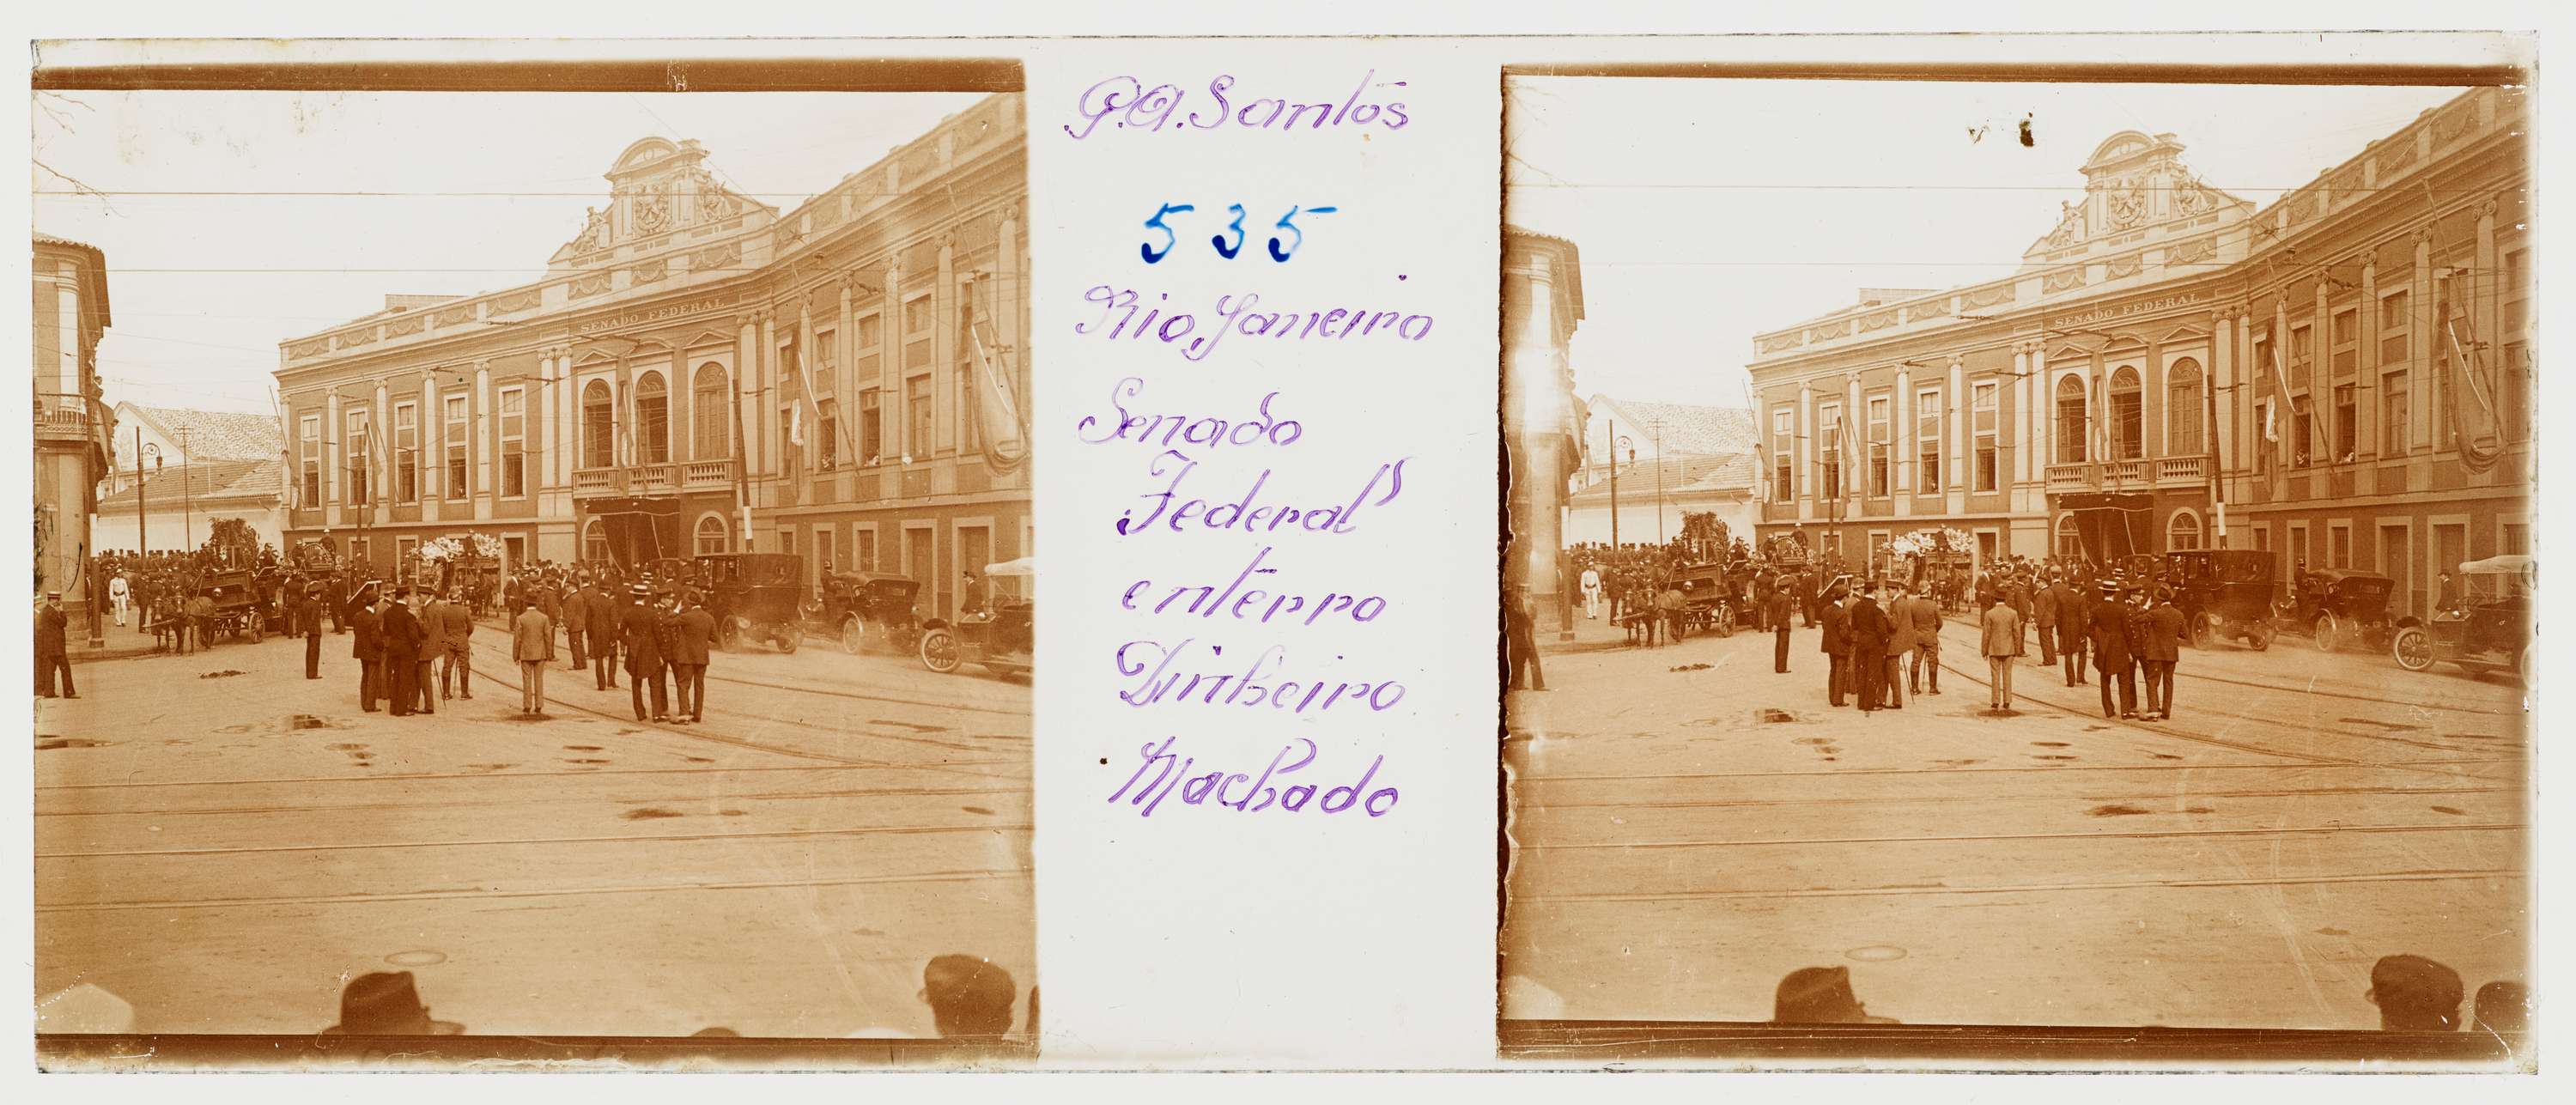 SENADO FEDERAL
G.A. Santos
535
Rio, Janeiro
Senado
Federal
enterro
Pinheiro
Machado
SENADO FEDERAL